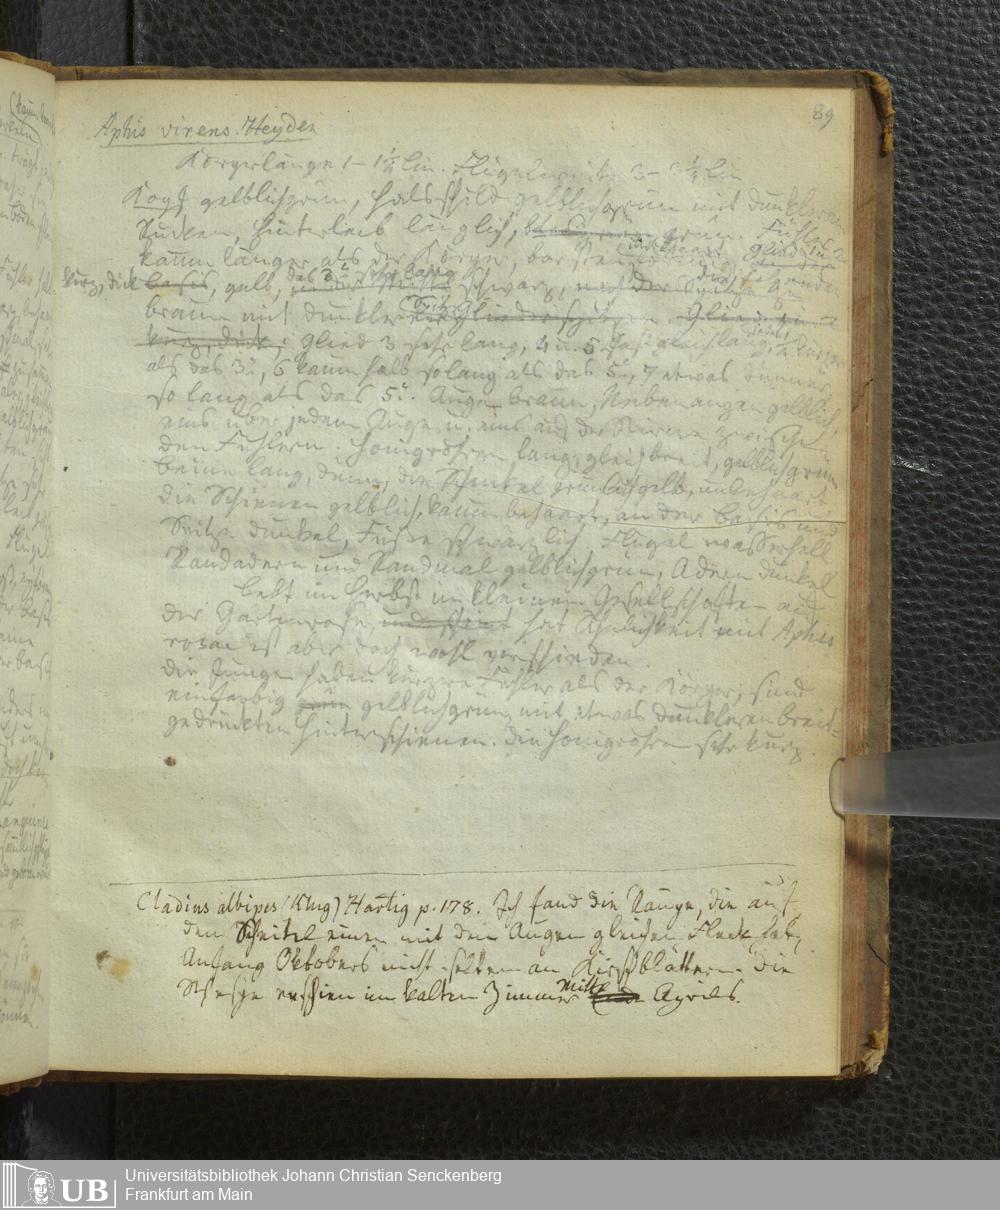 89
Aphis virens. Heyden
Körperlänge 1 – 1½ lin. Flügelweite 3 – 3½ lin
Kopf gelblichgrün, Halsschild gelblichgrün mit dunkleren
Rücken, Hinterleib länglich, grün. Fühler
kaum länger als der Körper, Glied 1 u. 2
kurz, dick basis, gelb, das 3te sehr lang schwarz, die folgenden
braun mit dunkler Spitze Gliederspitzen. Glied 1 u. 2
kurz, dick, Glied 3 sehr lang, 4 u. 5 fast gleichlang, jedes kürzer
als das 3te, 6 kaum halb so lang als das 5te, 7 etwas dünner
so lang als das 5te. Augen braun, Nebenaugen gelblich,
eins über jedem Auge u. eins auf der Stirne zwischen
den Fühlern. Honigröhren lang, gleichbreit, gelblichgrün
Beine lang, dünn, die Schenkel grünlichgelb, unbehaart
die Schienen gelblich, kaum behaart, an der Basis und
Spitze dunkel, Füße schwärzlich. Flügel wasserhell
Randadern und Randmal gelblichgrün, Adern dunkel
Lebt im Herbst in kleinen Gesellschaften auf
der Gartenrose, hat Ähnlichkeit mit Aphis
rosae ist aber doch wohl verschieden.
die Jungen haben kürzere Fühler als der Körper, sind
einfarbig grün gelblichgrün, mit etwas dunkleren breit-
gedrückten Hinterschienen. die Honigröhren sehr kurz.
Cladius albipes (Klug) Hartig p. 178. Ich fand die Raupe, die auf
dem Scheitel einen mit den Augen gleichen Fleck hat,
Anfang Oktobers nicht selten an Kirschblättern. Die
Wespe erschien im kalten Zimmer Mitte Ende Aprils.
Universitätsbibliothek Johann Christian Senckenberg
Frankfurt am Main
UB